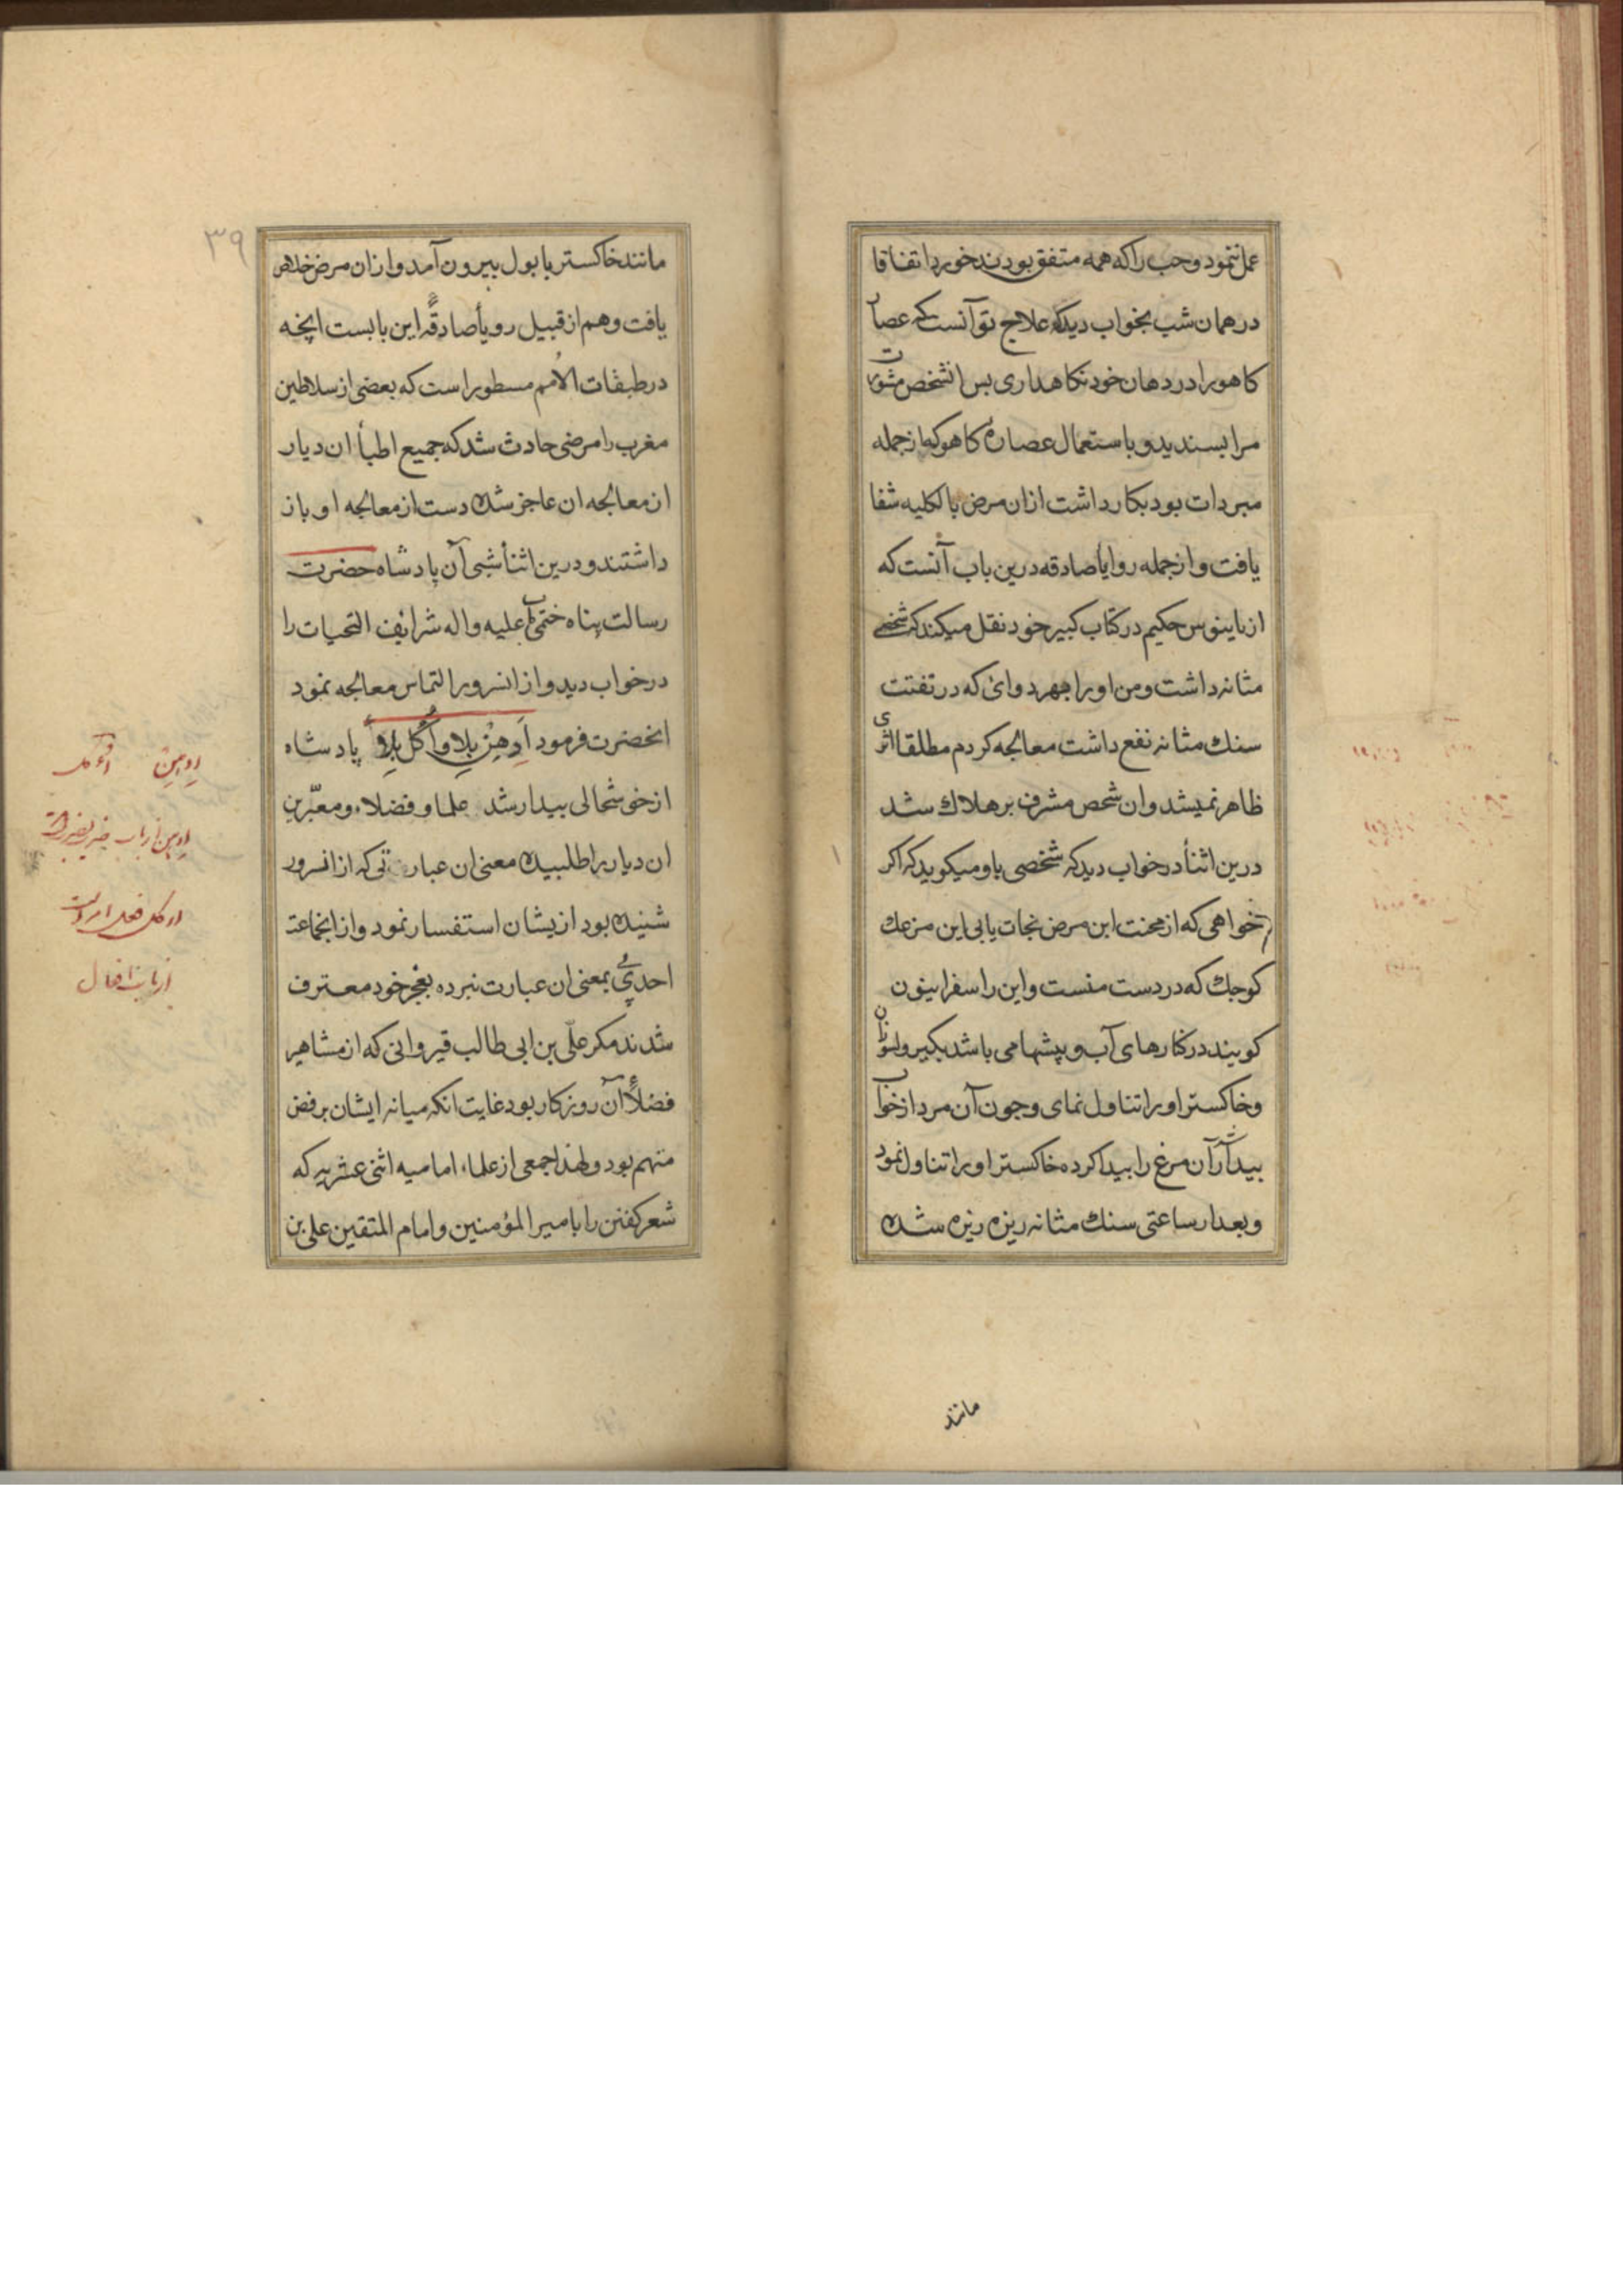 عمل ننمود وحب را که همه متفق بودند خورد اتفاقا
در همان شب بخواب دید که علاج تو آنست که عصار
کاهو را در دهان خود نکاهداری بس انشخص مشورت
مرا بسندید و باستعمال عصارهٔ کاهو که از جمله
مبردات بود بکار داشت ازان مرض بالکلیه شفا
یافت و از جمله رویأ صادقه درین باب آنست که
حکیم در کتاب کبیر خود نقل میکند که شخصی
مثانه داشت ومن او را بهر دوائی که در تفتت
سنك مثانه نفع داشت معالجه کردم مطلقا اثری
ظاهر نمیشد وان شحص مشرف بر هلاك شد
درین اثنأ در خواب دید که شخصی باو میکوید که اکر
خواهی که از محنت این مرض نجات یابی این مرغك
کوجك که در دست منست واین را سفراینون
کویند در کنارهای آب و بیشها می باشد بکیر و بسوزان
وخاکستر او را تناول نمای وجون آن مرد از خواب
بیدار شد آن مرغ را بیدا کرده خاکستر او را تناول نمود
و بعد از ساعتی سنك مثانه ریزه ریزه شده
مانند
۳۹
مانند خاکستر با بول بیرون آمد و ازان مرض خلاص
یافت وهم از قبیل رویأ صادقه این بابست انچه
در طبقات الأمم مسطور است که بعضی از سلاطین
مغرب را مرضی حادث شد که جمیع اطبأ ان دیار
از معالجه ان عاجز شده دست از معالجه او باز
داشتند و درین اثنأ شبی آن پادشاه حضرت
رسالت پناه ختمی علیه واله شرایف التحیات را
در خواب دید و از انسرور التماس معالجه نمود
انحضرت فرمود اَدهِنْ بِلا وَ اُکُل بِلاو پادشاه
از خوشحالی بیدار شد علما و فضلاء و معبّرین
ان دیار را طلبیده معنی ان عبارتی که از انسرور
شنیده بود از یشان استفسار نمود و از انجماعت
احدی پی بمعنی ان عبارت نبرده بعجز خود معترف
شدند مکر علّی بن ابی طالب قیروانی که از مشاهیر
فضلأ آن روزکار بود غایت انکه میانه ایشان برفض
متهم بود و لهذا جمعی از علماء امامیه اثنی عشریه که
شعر کفتن را بامیر المؤمنین و امام المتقین علی بن
ادهن
ادهن از باب